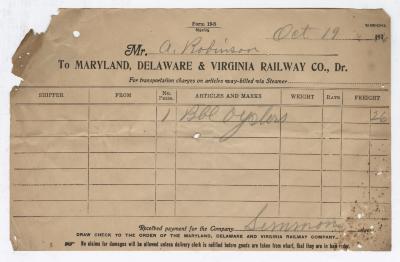 Form 19-S
Oct 19 191
Mr. A. Robinson
To MARYLAND, DELAWARE & VIRGINIA RAILWAY CO., Dr.
For transportation charges on articles way-billed via Steamer
SHIPPER FROM No. Pkgs. ARTICLES AND MARKS WEIGHT RATE FREIGHT
1 Bbl Oysters 26
Received payment for the Company Simmons
DRAW CHECK TO THE ORDER OF THE MARYLAND, DELAWARE AND VIRGINIA RAILWAY COMPANY.
No claims for damages will be allowed unless delivery clerk is notified before goods are taken from wharf, that they are in bad order.